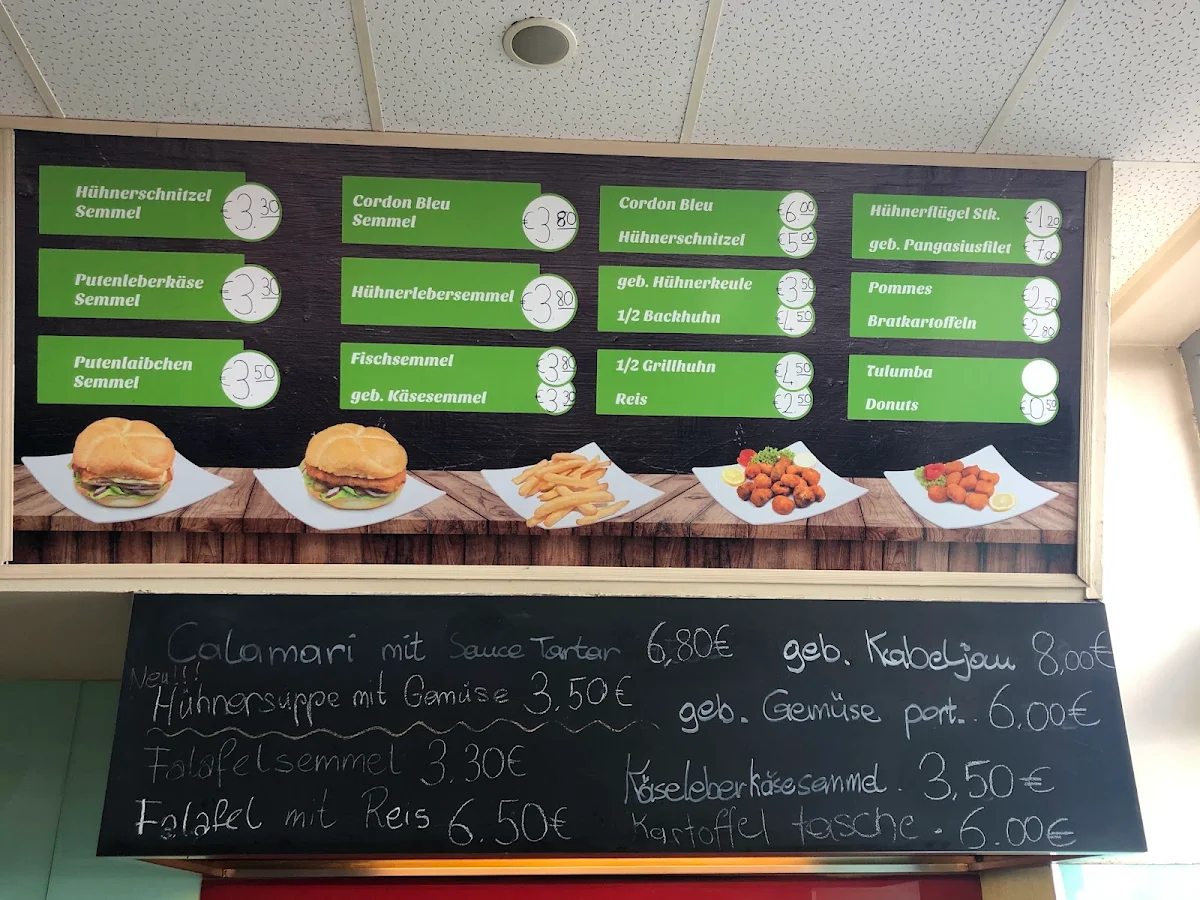 Hühnerschnitzel
Semmel
€3.30
Putenleberkäse
Semmel
€3.30
Putenlaibchen
Semmel
€3.50
Cordon Bleu
Semmel
€3.80
Hühnerlebersemmel €3.80
Fischsemmel €3.80
geb. Käsesemmel €3.30
Cordon Bleu €6.00
Hühnerschnitzel €5.00
geb. Hühnerkeule €3.50
1/2 Backhuhn €4.50
1/2 Grillhuhn €4.50
Reis €2.50
Hühnerflügel Stk. €1.20
geb. Pangasiusfilet €7.00
Pommes €2.50
Bratkartoffeln €2.80
Tulumba
Donuts €0.50
Calamari mit Sauce Tartar 6,80€
Neu!!!
Hühnersuppe mit Gemüse 3.50€
Falafelsemmel 3.30€
Falafel mit Reis 6.50€
geb. Kabeljau 8,00€
geb. Gemüse port. 6.00€
Käseleberkäsesemmel. 3,50€
Kartoffel tasche. 6.00€